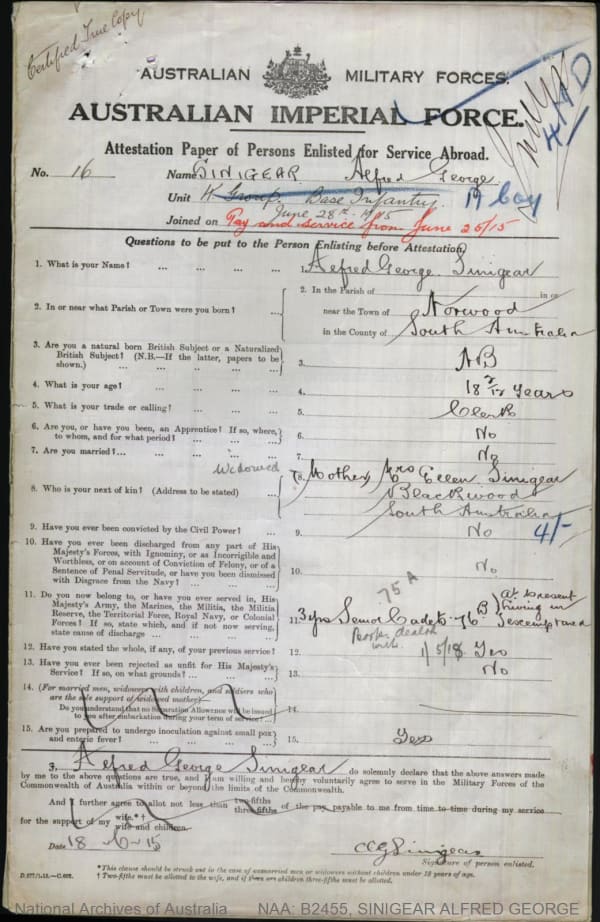 Certified True Copy
AUSTRALIAN MILITARY FORCES.
AUSTRALIAN IMPERIAL FORCE.
Attestation Paper of Persons Enlisted for Service Abroad.
No. 16 Name SINIGEAR Alfred George
Unit K Group. Base Infantry. 19 Coy
June 28th 1915
Joined on Pay and service from June 25/15
Questions to be put to the Person Enlisting before Attestation.
1. What is your Name? ... ... ... 1. Alfred George Sinigear
2. In or near what Parish or Town were you born? ... 2. In the Parish of in or
near the Town of Norwood
in the County of South Australia
3. Are you a natural born British Subject or a Naturalized
British Subject? (N.B.—If the latter, papers to be
shown.) ... ... ... 3. NB
4. What is your age? ... ... ... 4. 18 2/12 Years
5. What is your trade or calling? ... ... 5. Clerk
6. Are you, or have you been, an Apprentice? If so, where,
to whom, and for what period? ... ... 6. No
7. Are you married?... ... ... 7. No
Widowed
8. Who is your next of kin? (Address to be stated) ... 8. Mother, Mrs Ellen Sinigear
Blackwood
South Australia
9. Have you ever been convicted by the Civil Power? ... 9. No 4/-
10. Have you ever been discharged from any part of His
Majesty's Forces, with Ignominy, or as Incorrigible and
Worthless, or on account of Conviction of Felony, or of a
Sentence of Penal Servitude, or have you been dismissed
with Disgrace from the Navy? ... ... 10. No
75A
11. Do you now belong to, or have you ever served in, His
Majesty's Army, the Marines, the Militia, the Militia
Reserve, the Territorial Force, Royal Navy, or Colonial
Forces? If so, state which, and if not now serving,
state cause of discharge ... ... 11. 3 yrs Senior Cadets 76 B at present
living in exempt area
12. Have you stated the whole, if any, of your previous service? 12. Yes
1/5/18
13. Have you ever been rejected as unfit for His Majesty's
Service? If so, on what grounds? ... 13. No
14. (For married men, widowers with children, and soldiers who
are the sole support of widowed mother)—
Do you understand that no Separation Allowance will be issued
to you after embarkation during your term of service? ... 14.
15. Are you prepared to undergo inoculation against small pox
and enteric fever? ... ... ... 15. Yes
I, Alfred George Sinigear do solemnly declare that the above answers made
by me to the above questions are true, and I am willing and hereby voluntarily agree to serve in the Military Forces of the
Commonwealth of Australia within or beyond the limits of the Commonwealth.
And I further agree to allot not less than two-fifths three-fifths of the pay payable to me from time to time during my service
for the support of my wife.*† wife and children.
Date 18-6-15 A G Sinigear
Signature of person enlisted.
*This clause should be struck out in the case of unmarried men or widowers without children under 18 years of age.
† Two-fifths must be allotted to the wife, and if there are children three-fifths must be allotted.
National Archives of Australia NAA: B2455, SINIGEAR ALFRED GEORGE